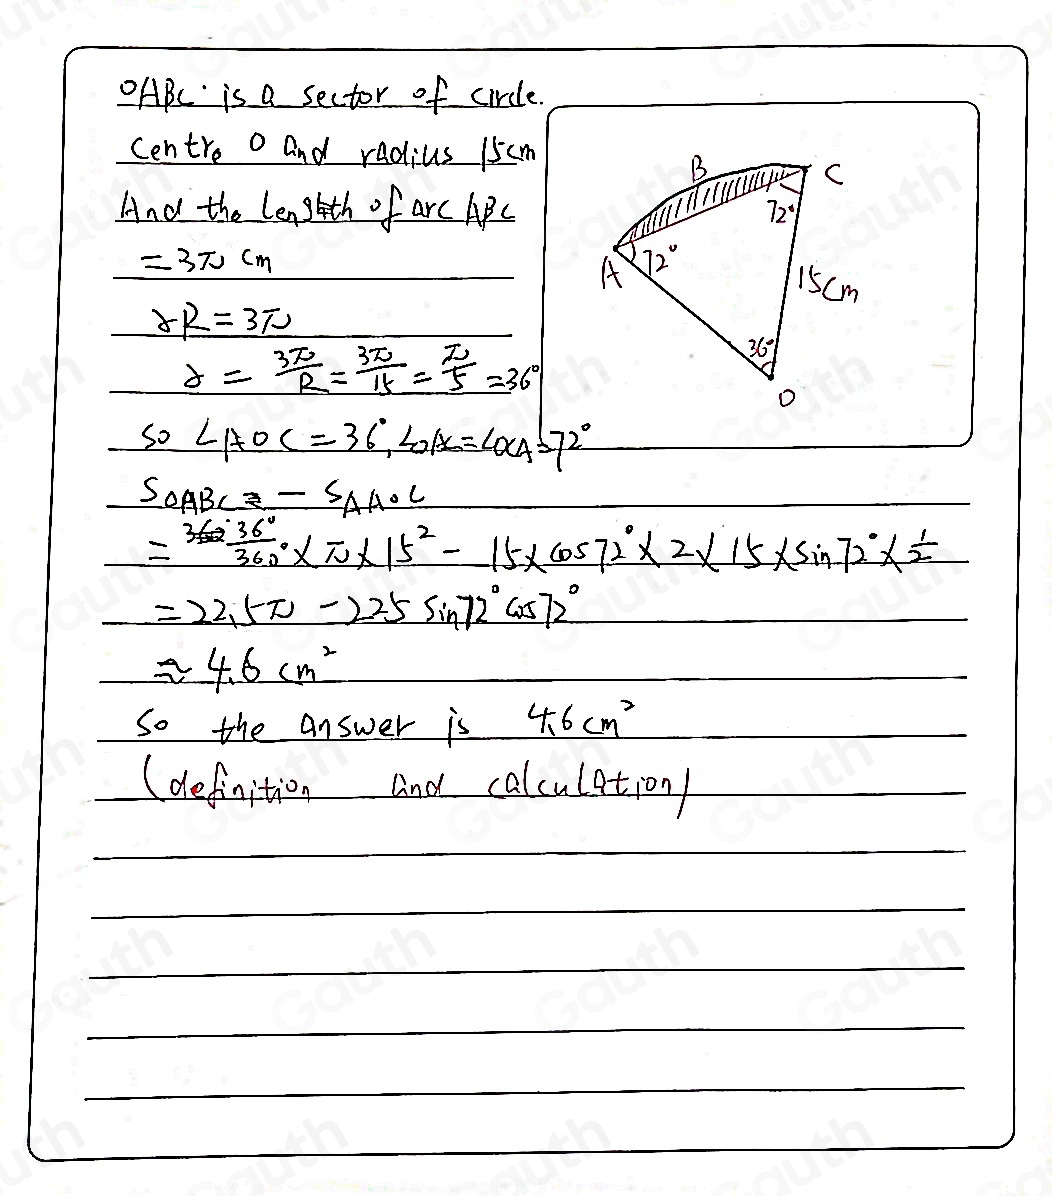 OABC is a sector of circle.
centre O and radius 15cm
And the length of arc ABC
= 3π cm
αR = 3π
α = 3π/R = 3π/15 = π/5 = 36°
so ∠AOC = 36°, ∠OAC = ∠OCA = 72°
S OABC = - S△AOC
= 36°/360° × π × 15² - 15 × cos72° × 2 × 15 × sin72° × 1/2
= 22.5π - 225 sin72° cos72°
≈ 4.6 cm²
so the answer is 4.6 cm²
(definition and calculation)
B
C
72°
A
72°
15cm
36°
O
Gauth